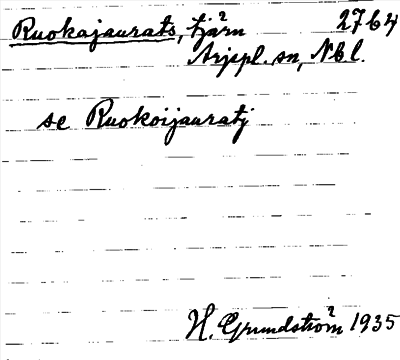 Ruokajaurats, tjärn 2764
Arjepl. sn, Nb l.
se Ruokoijauratj
H. Grundström 1935